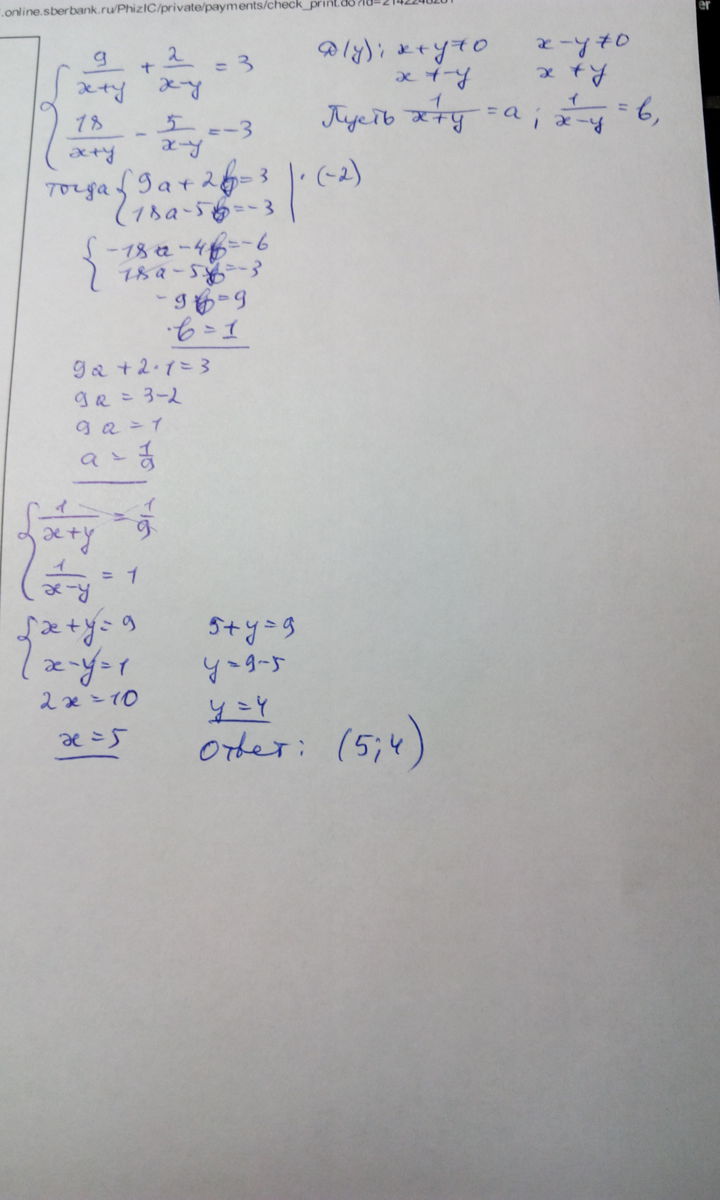 .online.sberbank.ru/PhizIC/private/payments/check_print.do?id=
er
{ 9/(x+y) + 2/(x-y) = 3
18/(x+y) - 5/(x-y) = -3
D(y); x+y≠0 x-y≠0
x≠-y x≠y
Пусть 1/(x+y) = a; 1/(x-y) = b,
тогда { 9a+2b=3 | · (-2)
18a-5b=-3
{ -18a-4b=-6
18a-5b=-3
-9b=9
b=1
9a+2·1=3
9a=3-2
9a=1
a=1/9
{ 1/(x+y) = 1/9
1/(x-y) = 1
{ x+y=9
x-y=1
2x=10
x=5
5+y=9
y=9-5
y=4
Ответ: (5;4)